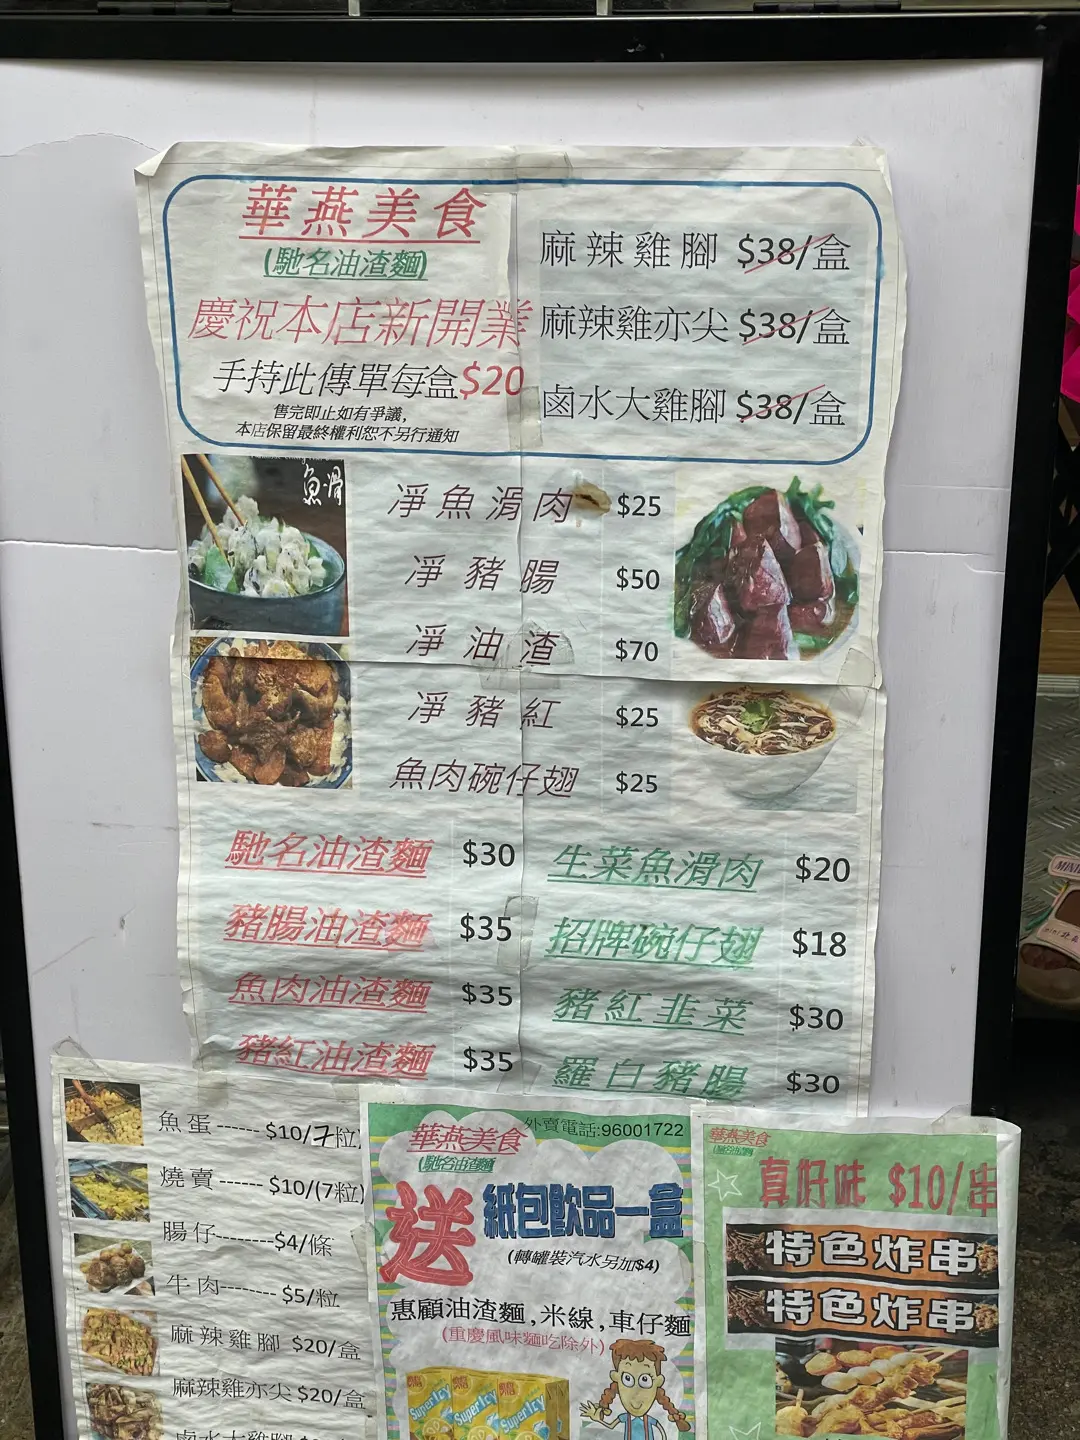 華燕美食
(馳名油渣麵)
慶祝本店新開業
手持此傳單每盒$20
售完即止如有爭議,
本店保留最終權利恕不另行通知
麻辣雞腳 $38/盒
麻辣雞亦尖 $38/盒
鹵水大雞腳 $38/盒
魚滑
凈魚滑肉 $25
凈豬腸 $50
凈油渣 $70
凈豬紅 $25
魚肉碗仔翅 $25
馳名油渣麵 $30
豬腸油渣麵 $35
魚肉油渣麵 $35
豬紅油渣麵 $35
生菜魚滑肉 $20
招牌碗仔翅 $18
豬紅韭菜 $30
羅白豬腸 $30
魚蛋------ $10/7粒)
燒賣------ $10/(7粒)
腸仔--------$4/條
牛肉-------- $5/粒
麻辣雞腳 $20/盒
麻辣雞亦尖 $20/盒
鹵水大雞腳
外賣電話:96001722
華燕美食
(馳名油渣麵)
送
紙包飲品一盒
(轉罐裝汽水另加$4)
惠顧油渣麵,米線,車仔麵
(重慶風味麵吃除外)
SuperIcy
SuperIcy
SuperIcy
華燕美食
(馳名油渣麵)
真好味 $10/串
特色炸串
特色炸串